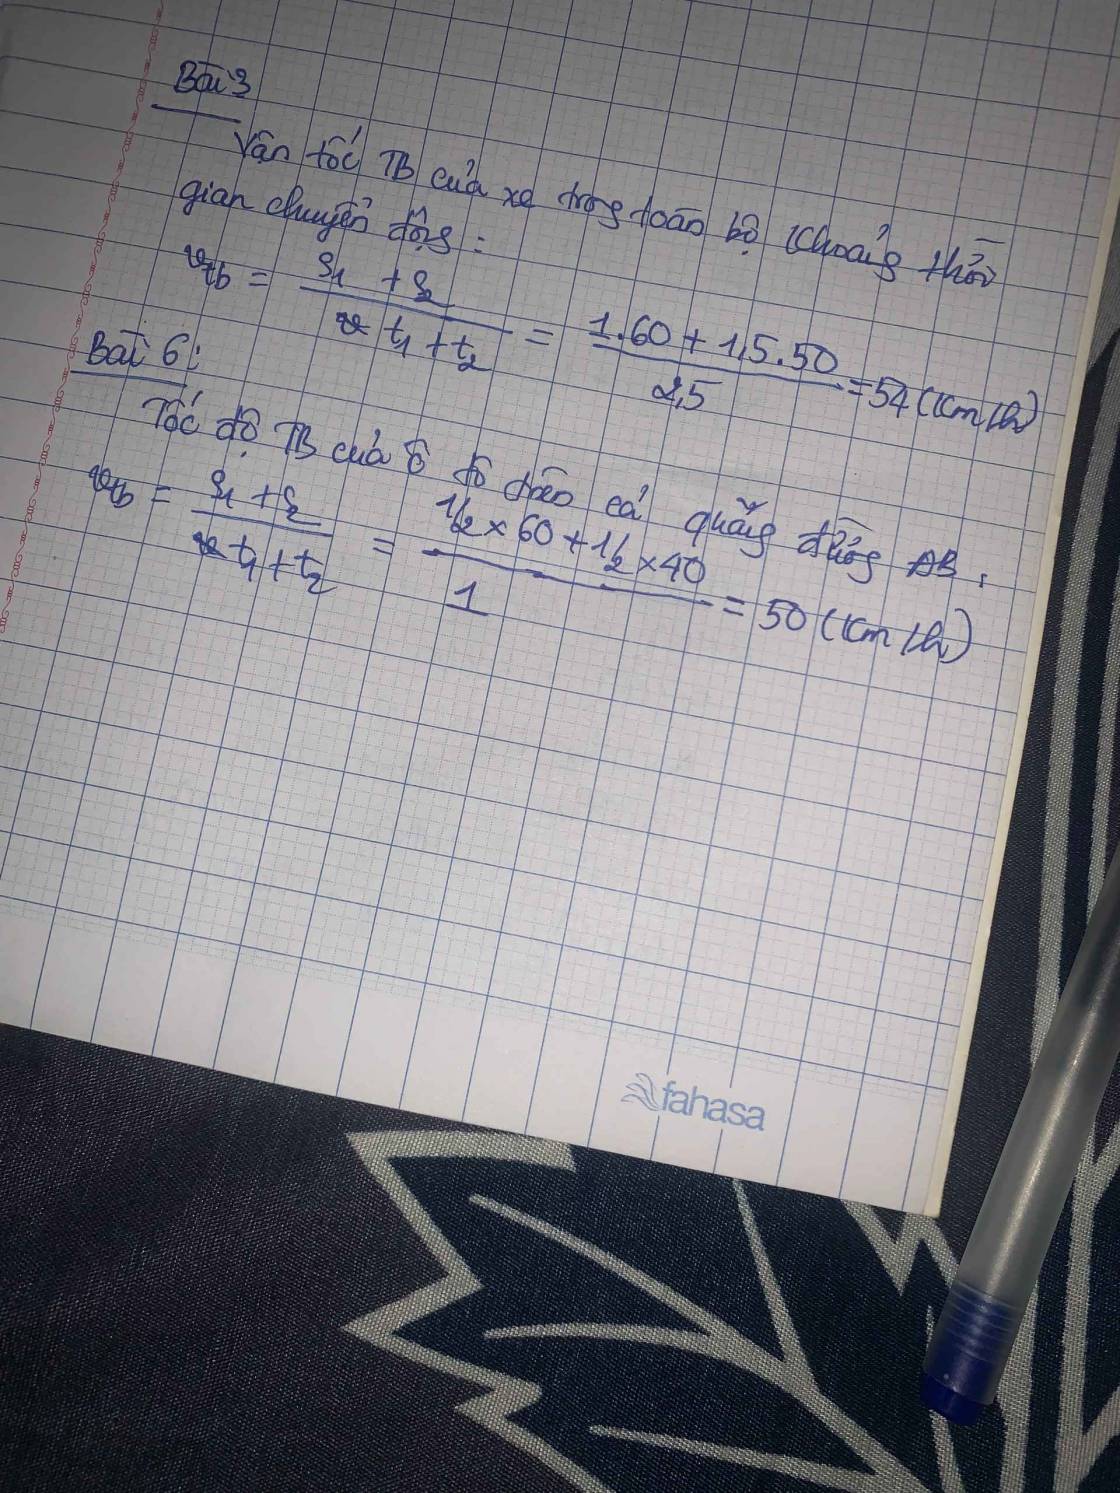 Bài 3
Vận tốc TB của xe trong toàn bộ khoảng thời
gian chuyển động :
vtb = s1 + s2 / t1 + t2 = 1.60 + 1,5.50 / 2,5 = 54 (km/h)
Bài 6 :
Tốc độ TB của ô tô trên cả quãng đường AB.
vtb = s1 + s2 / t1 + t2 = 1/2 x 60 + 1/2 x 40 / 1 = 50 (km/h)
fahasa